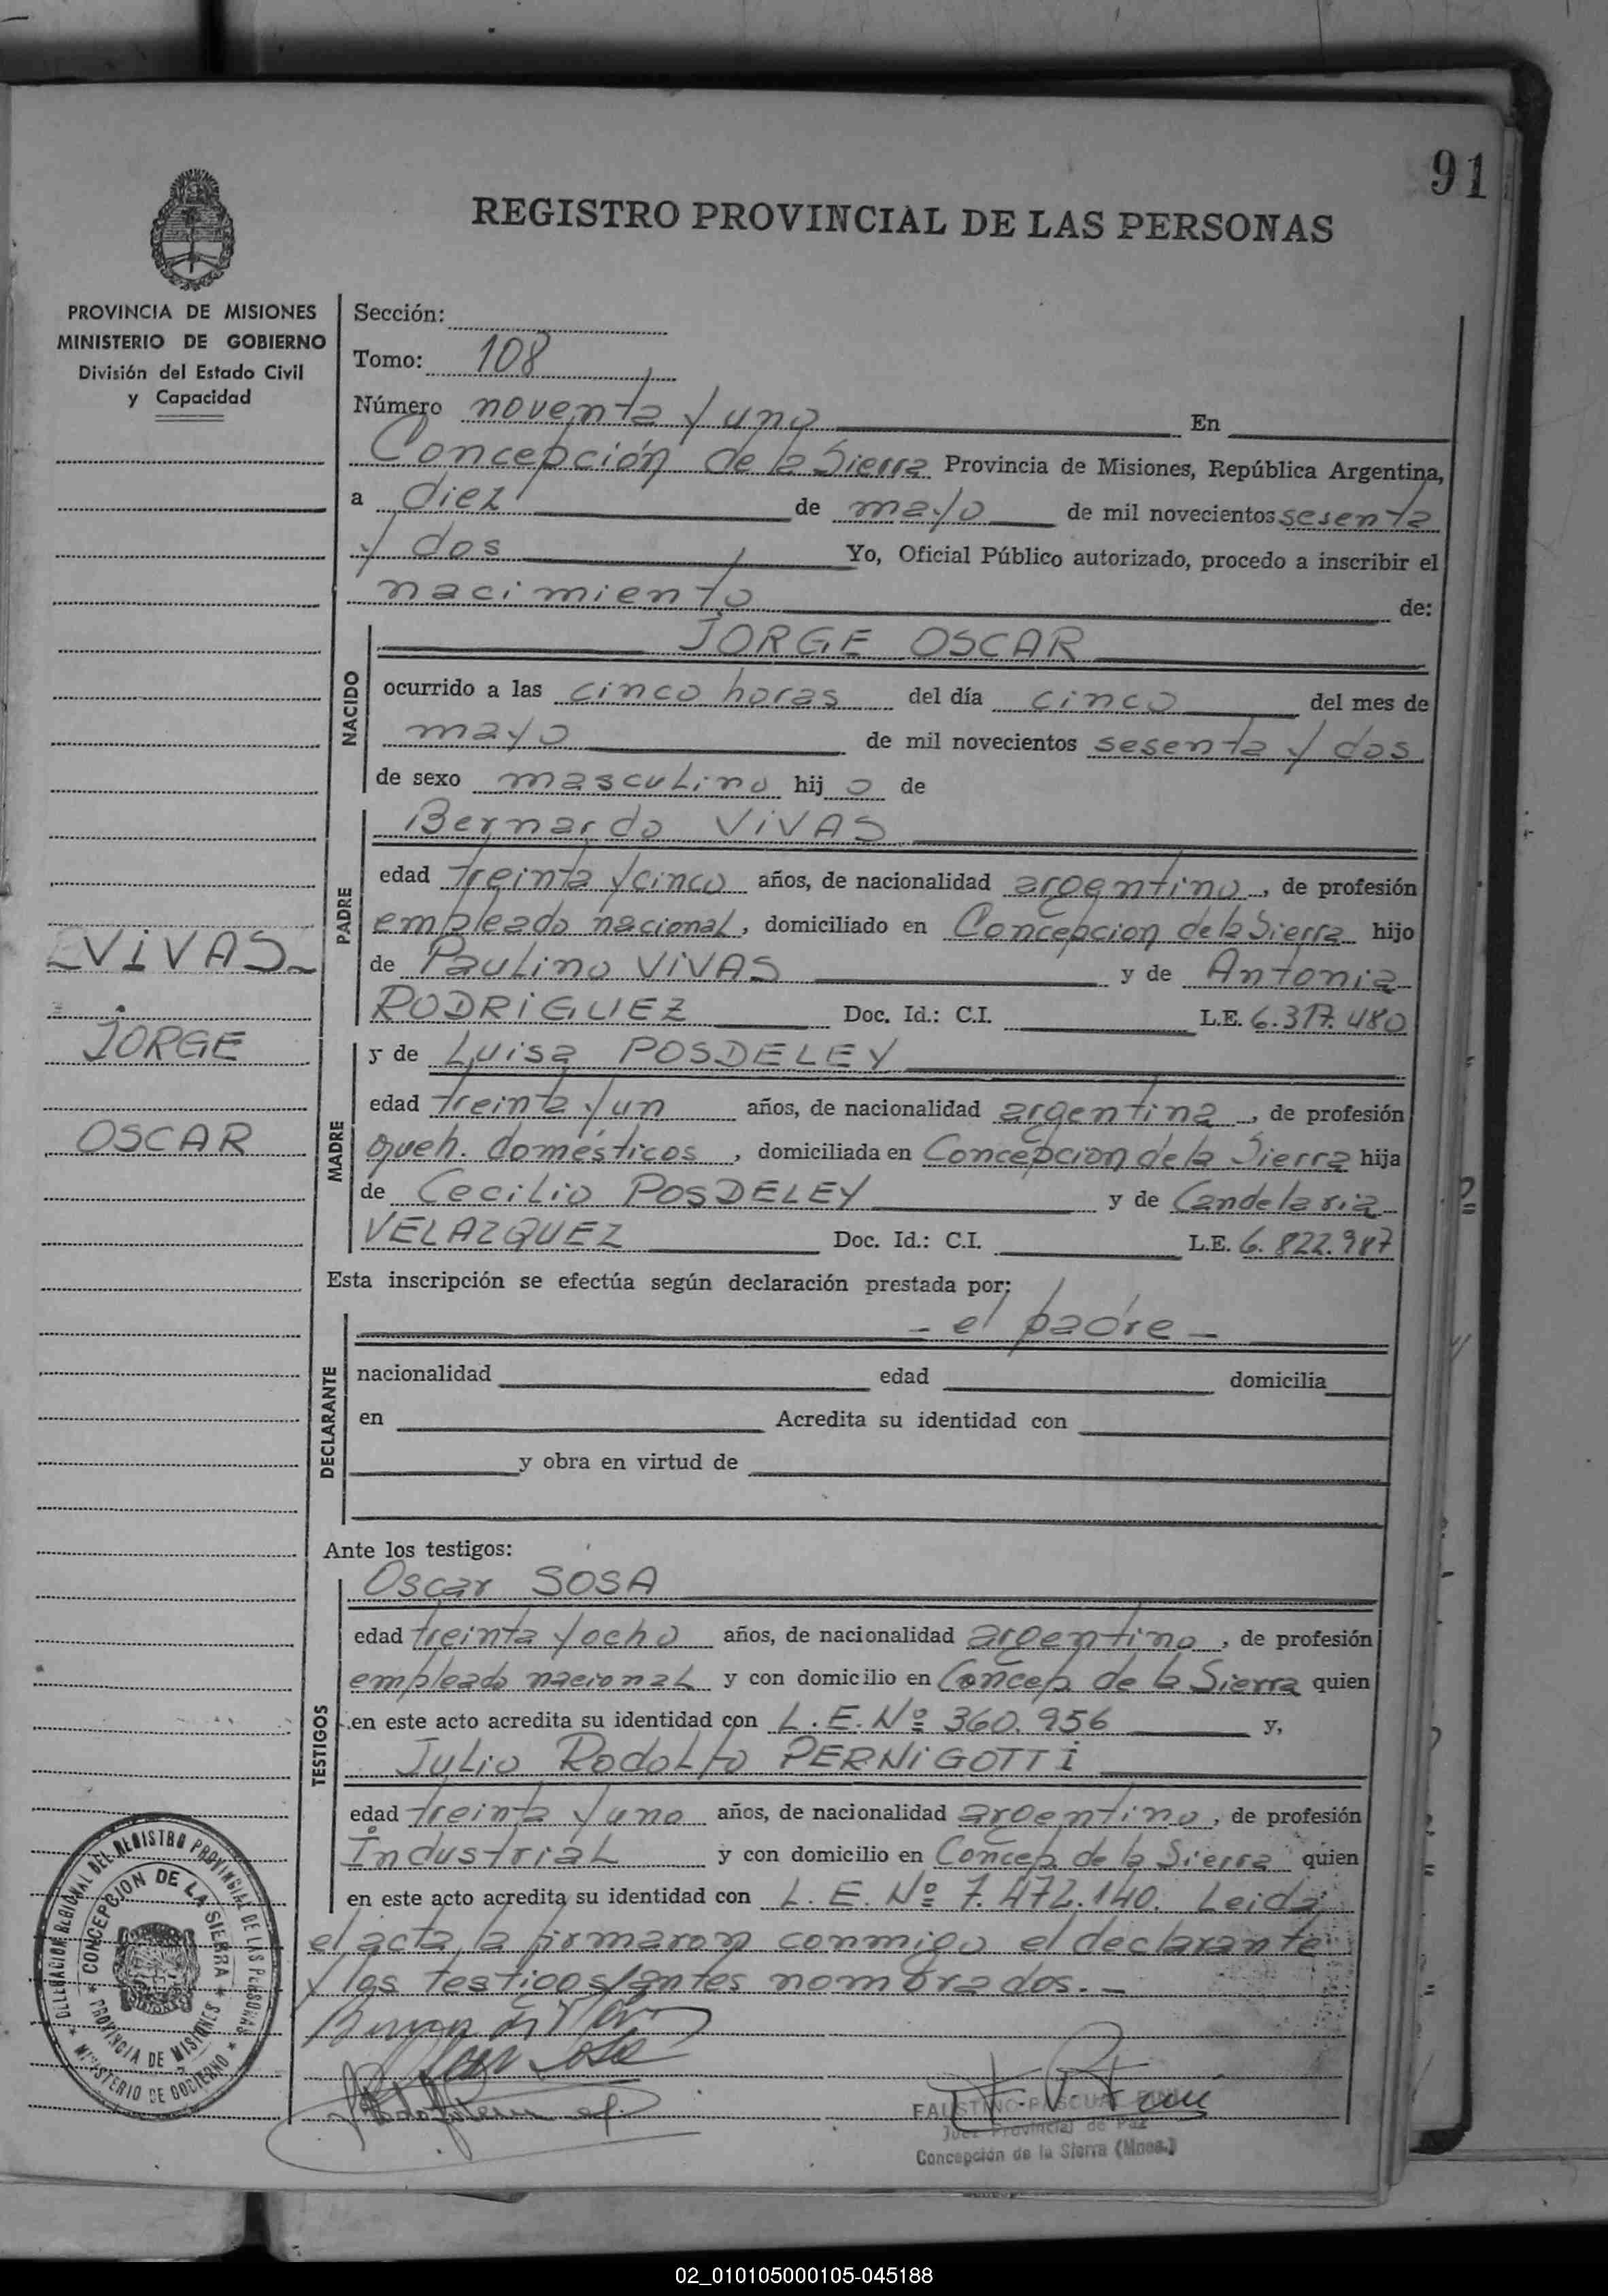 91
REGISTRO PROVINCIAL DE LAS PERSONAS
PROVINCIA DE MISIONES
MINISTERIO DE GOBIERNO
División del Estado Civil
y Capacidad
VIVAS
JORGE
OSCAR
Sección:
Tomo: 108
Número noventa y uno En
Concepción de la Sierra Provincia de Misiones, República Argentina,
a diez de mayo de mil novecientos sesenta
y dos Yo, Oficial Público autorizado, procedo a inscribir el
nacimiento de:
NACIDO
JORGE OSCAR
ocurrido a las cinco horas del día cinco del mes de
mayo de mil novecientos sesenta y dos
de sexo masculino hij o de
PADRE
Bernardo VIVAS
edad treinta y cinco años, de nacionalidad argentino, de profesión
empleado nacional, domiciliado en Concepcion de la Sierra hijo
de Paulino VIVAS y de Antonia
RODRIGUEZ Doc. Id.: C.I. L.E. 6.317.480
MADRE
y de Luisa POSDELEY
edad treinta y un años, de nacionalidad argentina, de profesión
queh. domésticos, domiciliada en Concepcion de la Sierra hija
de Cecilio POSDELEY y de Candelaria
VELAZQUEZ Doc. Id.: C.I. L.E. 6.822.987
Esta inscripción se efectúa según declaración prestada por:
DECLARANTE
- el padre -
nacionalidad edad domicilia
en Acredita su identidad con
y obra en virtud de
Ante los testigos:
TESTIGOS
Oscar SOSA
edad treinta y ocho años, de nacionalidad argentino, de profesión
empleado nacional y con domicilio en Concep. de la Sierra quien
en este acto acredita su identidad con L.E. Nº 360.956 y,
Julio Rodolfo PERNIGOTTI
edad treinta y uno años, de nacionalidad argentino, de profesión
Industrial y con domicilio en Concep. de la Sierra quien
en este acto acredita su identidad con L.E. Nº 7.472.140. Leida
el acta, la firmaron conmigo el declarante
y los testigos antes nombrados.-
DELEGACION REGIONAL DEL REGISTRO PROVINCIAL DE LAS PERSONAS
MINISTERIO DE GOBIERNO
CONCEPCION DE LA SIERRA
PROVINCIA DE MISIONES
FAUSTINO PASCUAL
Juez Provincial de Paz
Concepción de la Sierra (Mnes.)
02_010105000105-045188